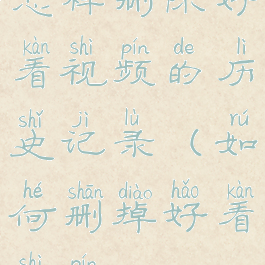 怎样删除好
kàn shì pín de lì
看视频的历
shǐ jì lù rú
史记录（如
hé shān diào hǎo kàn
何删掉好看
shì pín